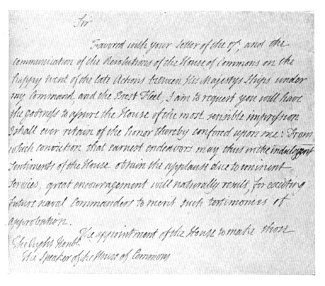 Sir
Favored with your letter of the 17, and the
communication of the Resolutions of the House of Commons on the
happy event of the late Actions between his Majestys Ships under
my Command, and the Brest Fleet, I am to request you will have
the goodness to assure the House of the most sensible impression
I shall ever retain of the honor thereby conferred upon me: From
which conviction that earnest endeavors may thus in the indulgent
sentiments of the House obtain the applause due to eminent
services, great encouragement will naturally result, for exciting
future naval commanders to merit such testimonies of
approbation.
The appointment of the House to make those
The Right Honble
The Speaker of the House of Commons